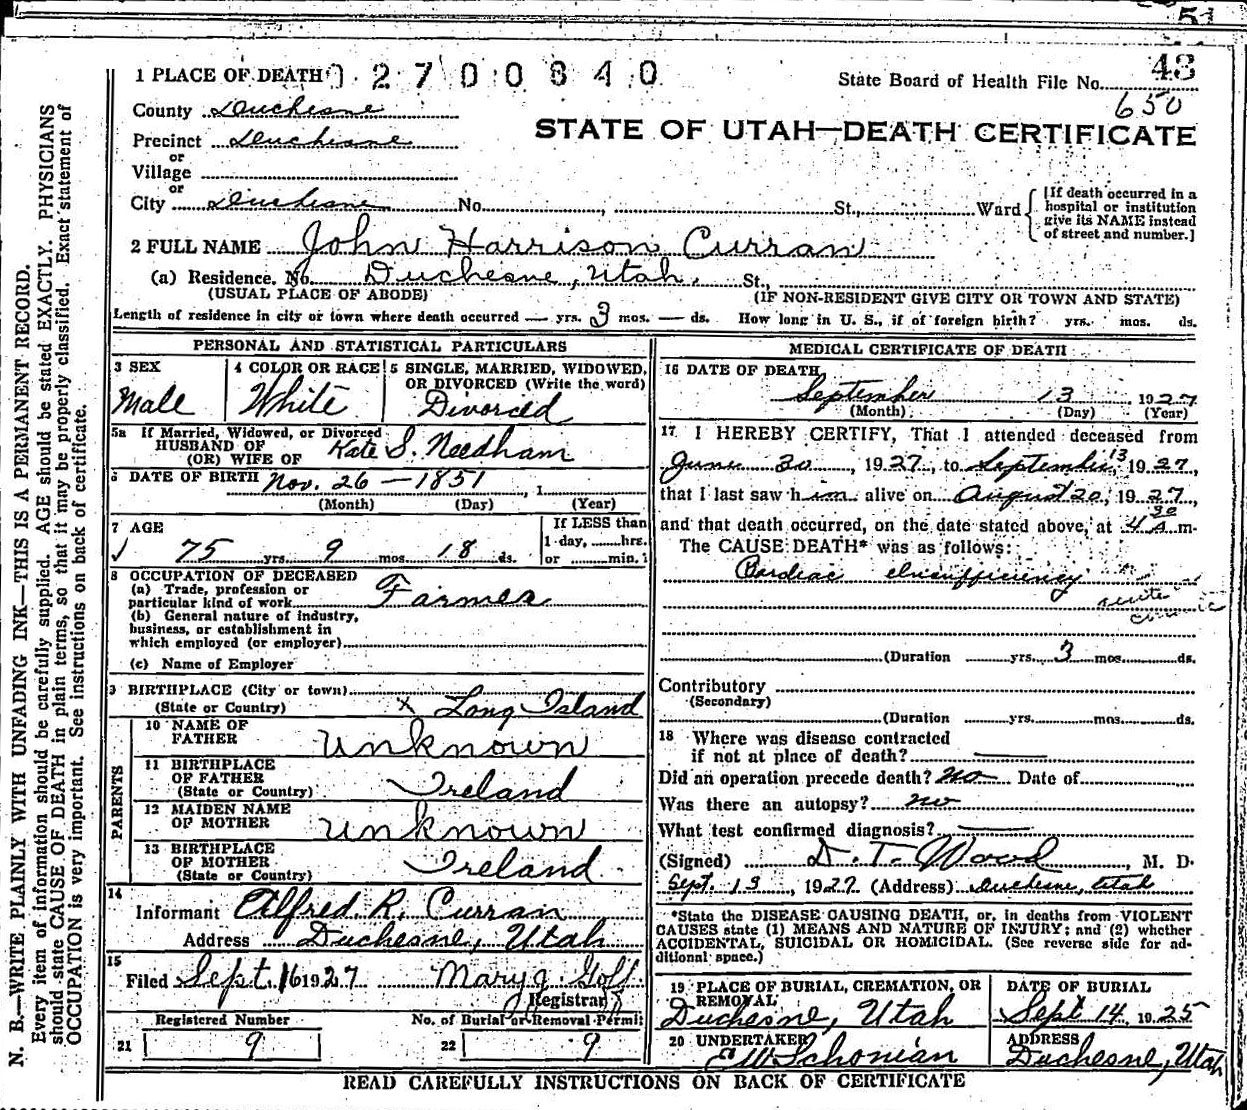 51
1 PLACE OF DEATH 02700840
State Board of Health File No. 43
650
County Duchesne
STATE OF UTAH—DEATH CERTIFICATE
Precinct Duchesne
or
Village
or
City Duchesne No. , St., Ward
[If death occurred in a
hospital or institution
give its NAME instead
of street and number.]
2 FULL NAME John Harrison Curran
(a) Residence. No. Duchesne, Utah. St.,
(USUAL PLACE OF ABODE) (IF NON-RESIDENT GIVE CITY OR TOWN AND STATE)
Length of residence in city or town where death occurred — yrs. 3 mos. — ds. How long in U. S., if of foreign birth? yrs. mos. ds.
PERSONAL AND STATISTICAL PARTICULARS
3 SEX
Male
4 COLOR OR RACE
White
5 SINGLE, MARRIED, WIDOWED,
OR DIVORCED (Write the word)
Divorced
5a If Married, Widowed, or Divorced
HUSBAND OF
(OR) WIFE OF Kate S. Needham
6 DATE OF BIRTH Nov. 26 — 1851 , 1
(Month) (Day) (Year)
7 AGE
75 yrs. 9 mos. 18 ds.
If LESS than
1 day, hrs.
or min.
8 OCCUPATION OF DECEASED
(a) Trade, profession or
particular kind of work Farmer
(b) General nature of industry,
business, or establishment in
which employed (or employer)
(c) Name of Employer
9 BIRTHPLACE (City or town)
(State or Country) x Long Island
PARENTS
10 NAME OF
FATHER Unknown
11 BIRTHPLACE
OF FATHER
(State or Country) Ireland
12 MAIDEN NAME
OF MOTHER Unknown
13 BIRTHPLACE
OF MOTHER
(State or Country) Ireland
14
Informant Alfred. R. Curran
Address Duchesne, Utah
15
Filed Sept. 16 1927 Mary J. Goff
Registrar
Registered Number No. of Burial or Removal Permit
21 9 22 9
MEDICAL CERTIFICATE OF DEATH
16 DATE OF DEATH
September 13 1927
(Month) (Day) (Year)
17 I HEREBY CERTIFY, That I attended deceased from
June 30, 1927, to September 13 1927,
that I last saw him alive on August 20, 1927,
and that death occurred, on the date stated above, at 4 30 A m.
The CAUSE DEATH* was as follows:
Cardiac insufficiency
acute
(Duration yrs. 3 mos. ds.
Contributory
(Secondary)
(Duration yrs. mos. ds.
18 Where was disease contracted
if not at place of death? —
Did an operation precede death? no Date of
Was there an autopsy? no
What test confirmed diagnosis? —
(Signed) D. T. Wood, M. D.
Sept. 13, 1927 (Address) Duchesne, Utah
*State the DISEASE CAUSING DEATH, or, in deaths from VIOLENT
CAUSES state (1) MEANS AND NATURE OF INJURY; and (2) whether
ACCIDENTAL, SUICIDAL OR HOMICIDAL. (See reverse side for ad-
ditional space.)
19 PLACE OF BURIAL, CREMATION, OR
REMOVAL
Duchesne, Utah
DATE OF BURIAL
Sept 14, 1925
20 UNDERTAKER
E W Schonian
ADDRESS
Duchesne, Utah
READ CAREFULLY INSTRUCTIONS ON BACK OF CERTIFICATE
N. B.—WRITE PLAINLY WITH UNFADING INK—THIS IS A PERMANENT RECORD.
Every item of information should be carefully supplied. AGE should be stated EXACTLY. PHYSICIANS
should state CAUSE OF DEATH in plain terms, so that it may be properly classified. Exact statement of
OCCUPATION is very important. See instructions on back of certificate.